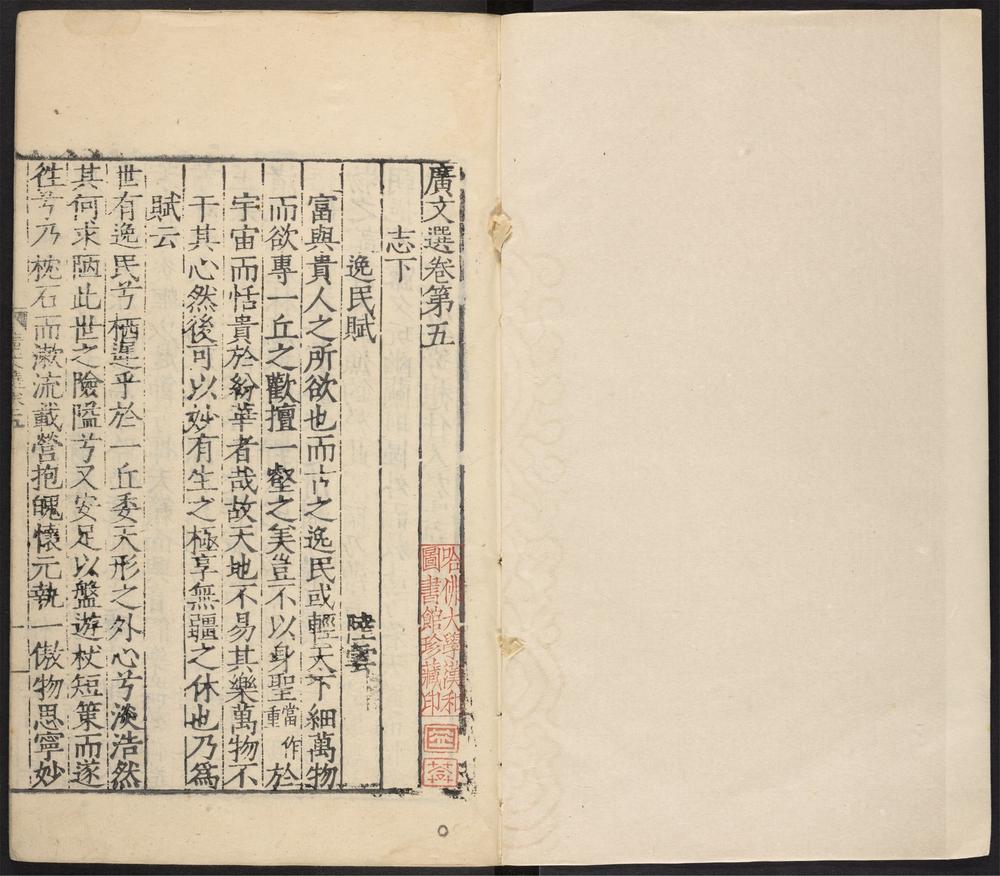 廣文選卷第五
志下
逸民賦 陸雲
富與貴人之所欲也而古之逸民或輕天下細萬物
而欲專一丘之歡擅一壑之美豈不以身聖當作重於
宇宙而恬貴於紛華者哉故天地不易其樂萬物不
干其心然後可以妙有生之極享無疆之休也乃為
賦云
世有逸民兮栖遲乎於一丘委天形之外心兮淡浩然
其何求陋此世之險隘兮又安足以盤遊杖短策而遂
徃兮乃枕石而漱流載營抱魄懷元執一傲物思寧妙
哈佛大學漢和
圖書館珍藏印